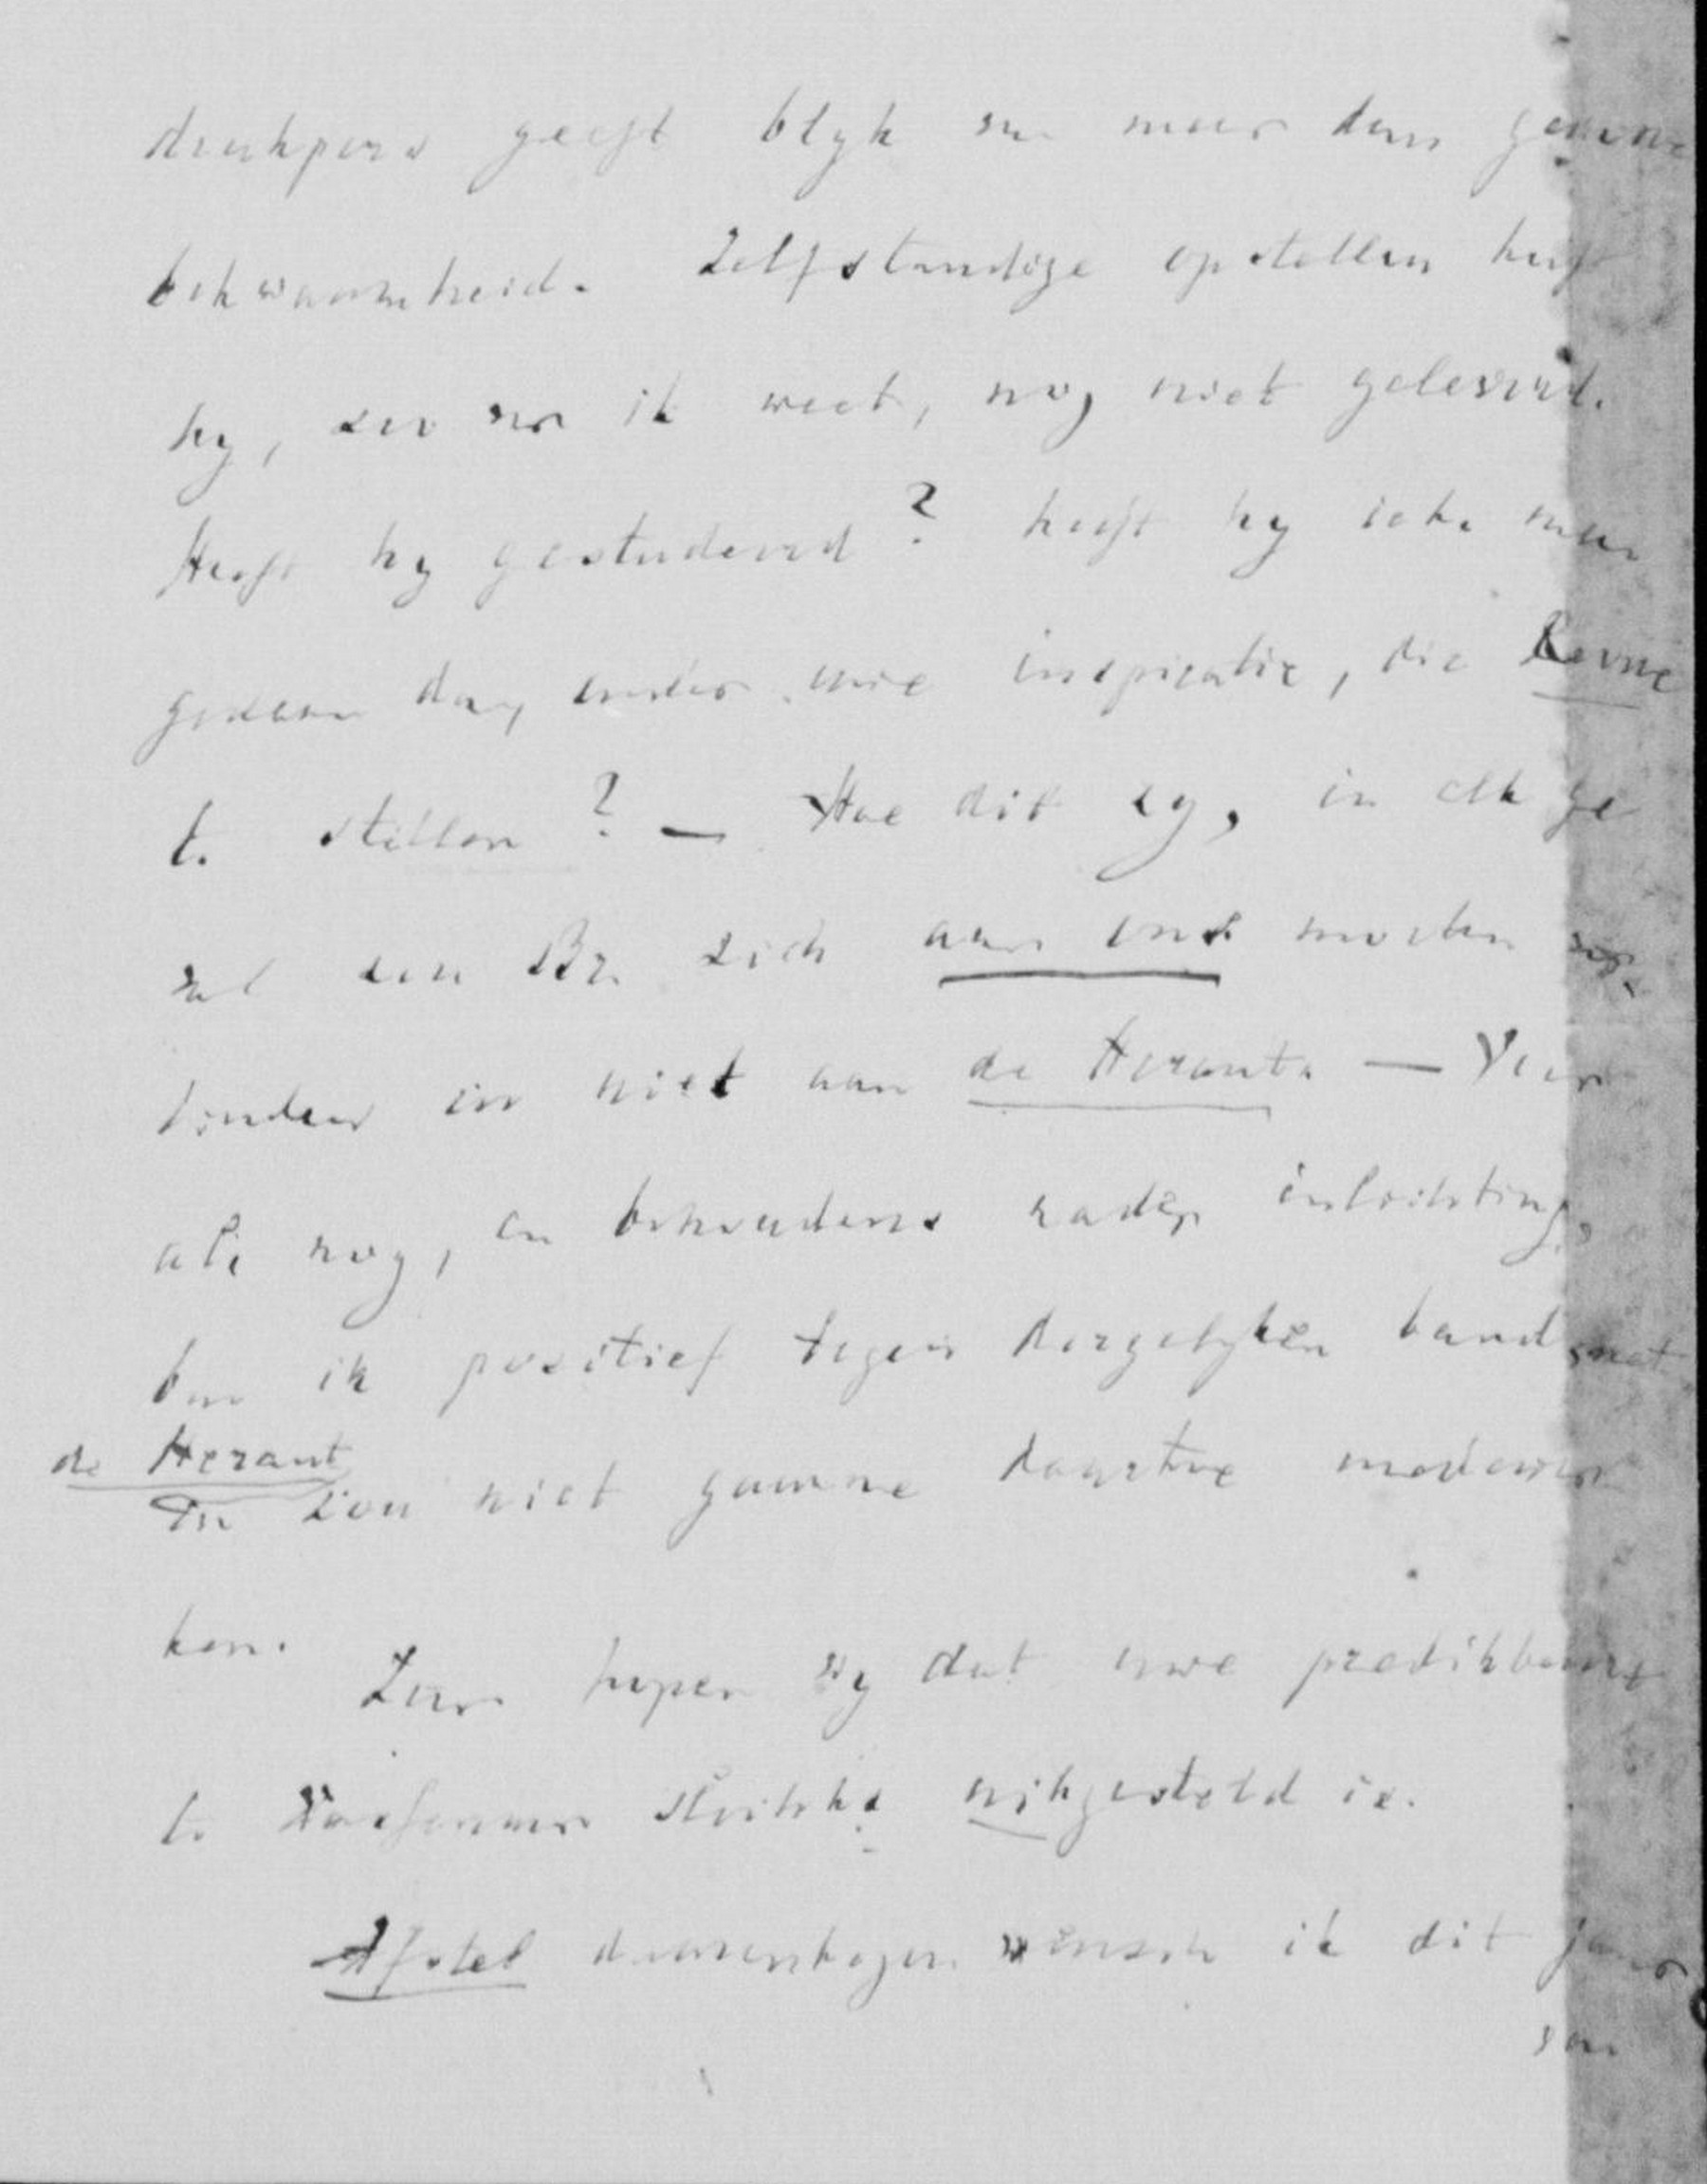 drukpers geeft blyk van meer dan gewone
bekwaamheid. Zelfstandige opstellen heeft
hy, zoo ver ik weet, nog niet geleverd.
Heeft hy gestudeerd? heeft hy iets meer
gedaan dan, onder uwe inspiratie, die Revue
te stellen? — Hoe dit zy, in elk ge
zal een Br. zich aan ons moeten ver-
binden en niet aan de Heraut. — Voor
als nog, en behoudens nader inlichting,
ben ik positief tegen dergelyken band met
de Heraut
En zou niet gaarne daartoe medewer
ken.
Zeer hopen wy dat uwe predikbeurt
te slechts uitgesteld is.
Afstel daarentegen wensch ik dit jaar
van